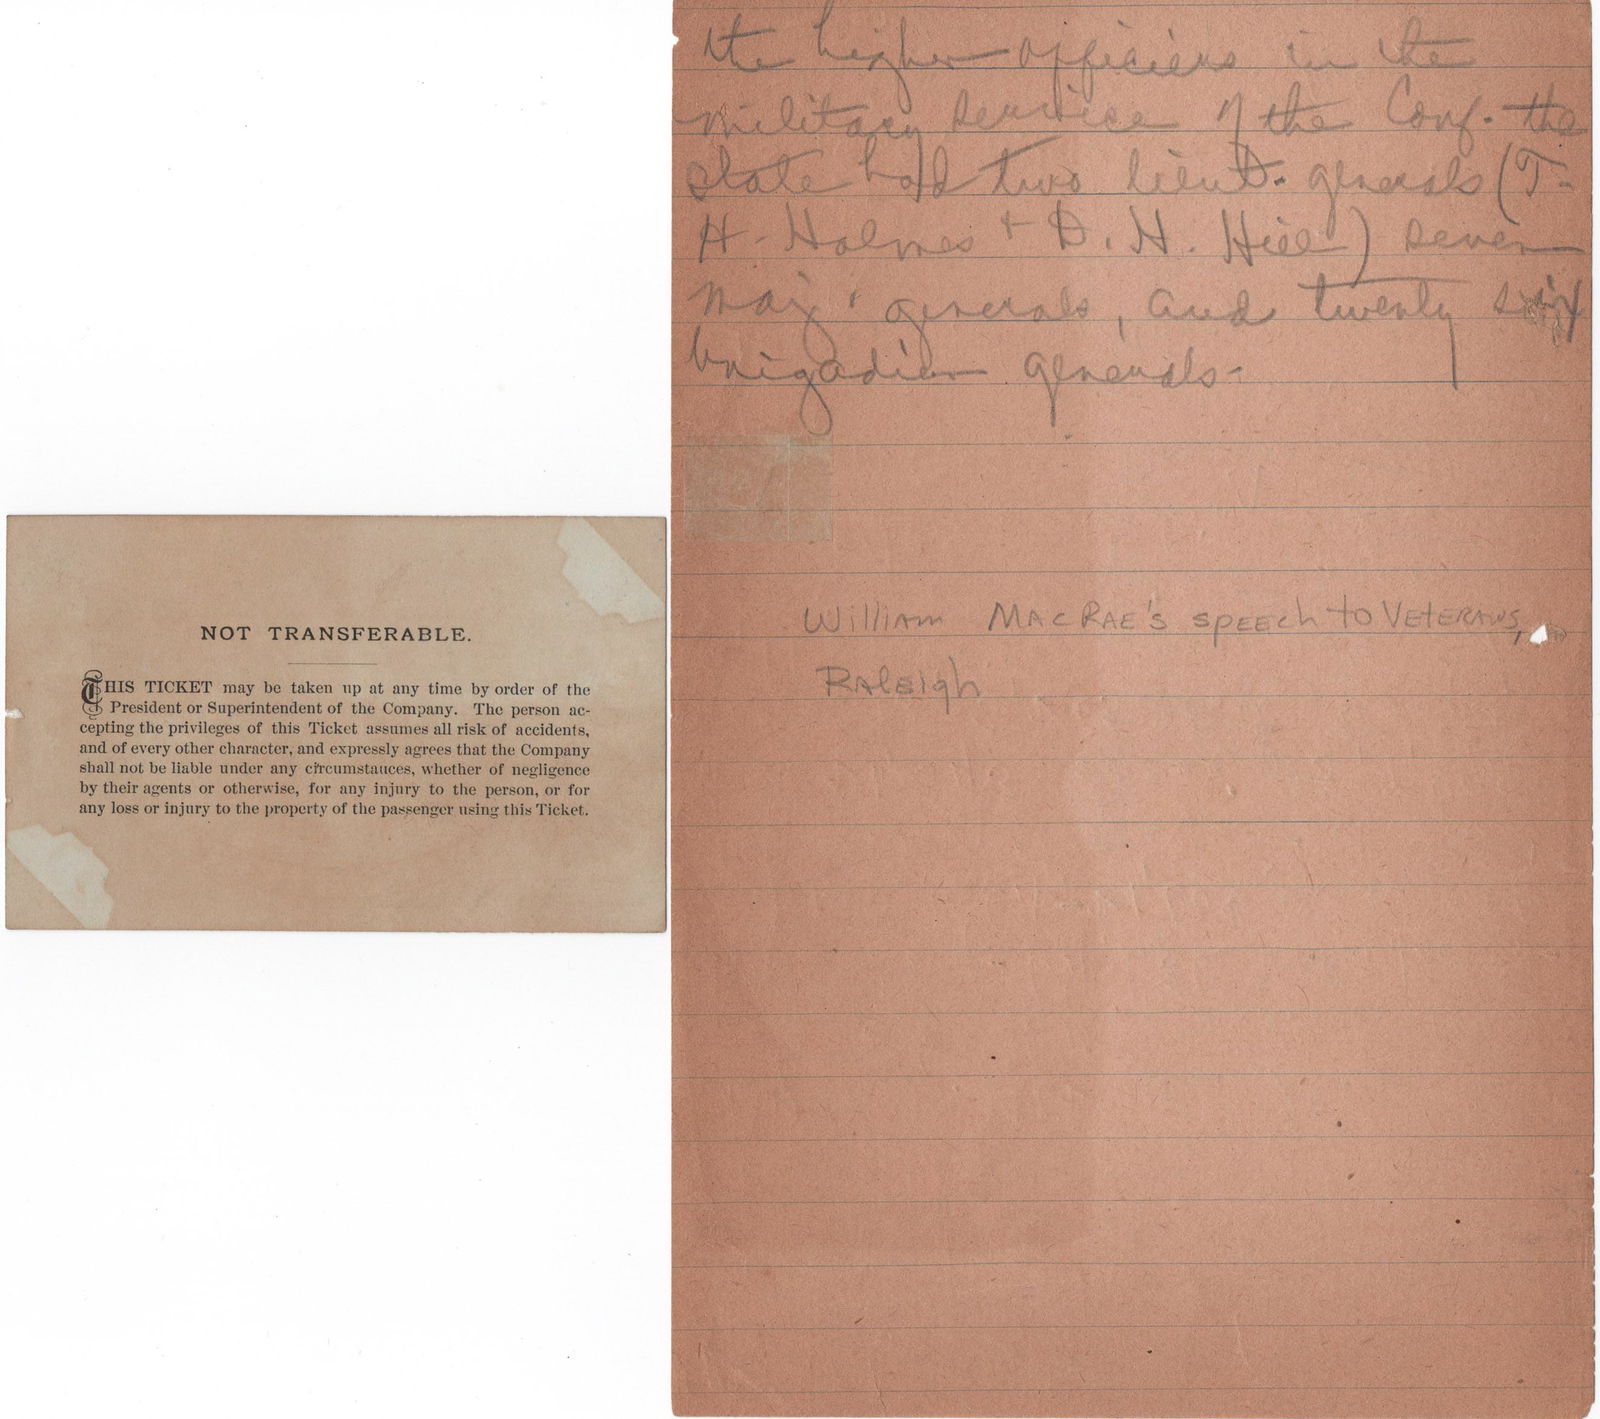 NOT TRANSFERABLE.
THIS TICKET may be taken up at any time by order of the
President or Superintendent of the Company. The person ac-
cepting the privileges of this Ticket assumes all risk of accidents,
and of every other character, and expressly agrees that the Company
shall not be liable under any circumstances, whether of negligence
by their agents or otherwise, for any injury to the person, or for
any loss or injury to the property of the passenger using this Ticket.
the higher officers in the
military service of the Conf. the
state had two lieut. generals (T.
H. Holmes + D. H. Hill) seven
maj. generals, and twenty six
brigadier generals.
William MacRae's speech to Veterans,
Raleigh